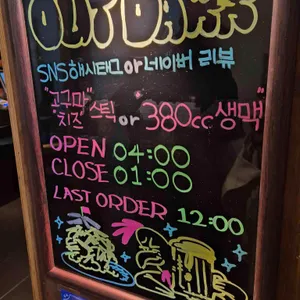 OUTDARK
SNS해시태그 or 네이버 리뷰
"고구마 스틱 or 380cc 생맥"
치즈
OPEN 04:00
CLOSE 01:00
LAST ORDER 12:00